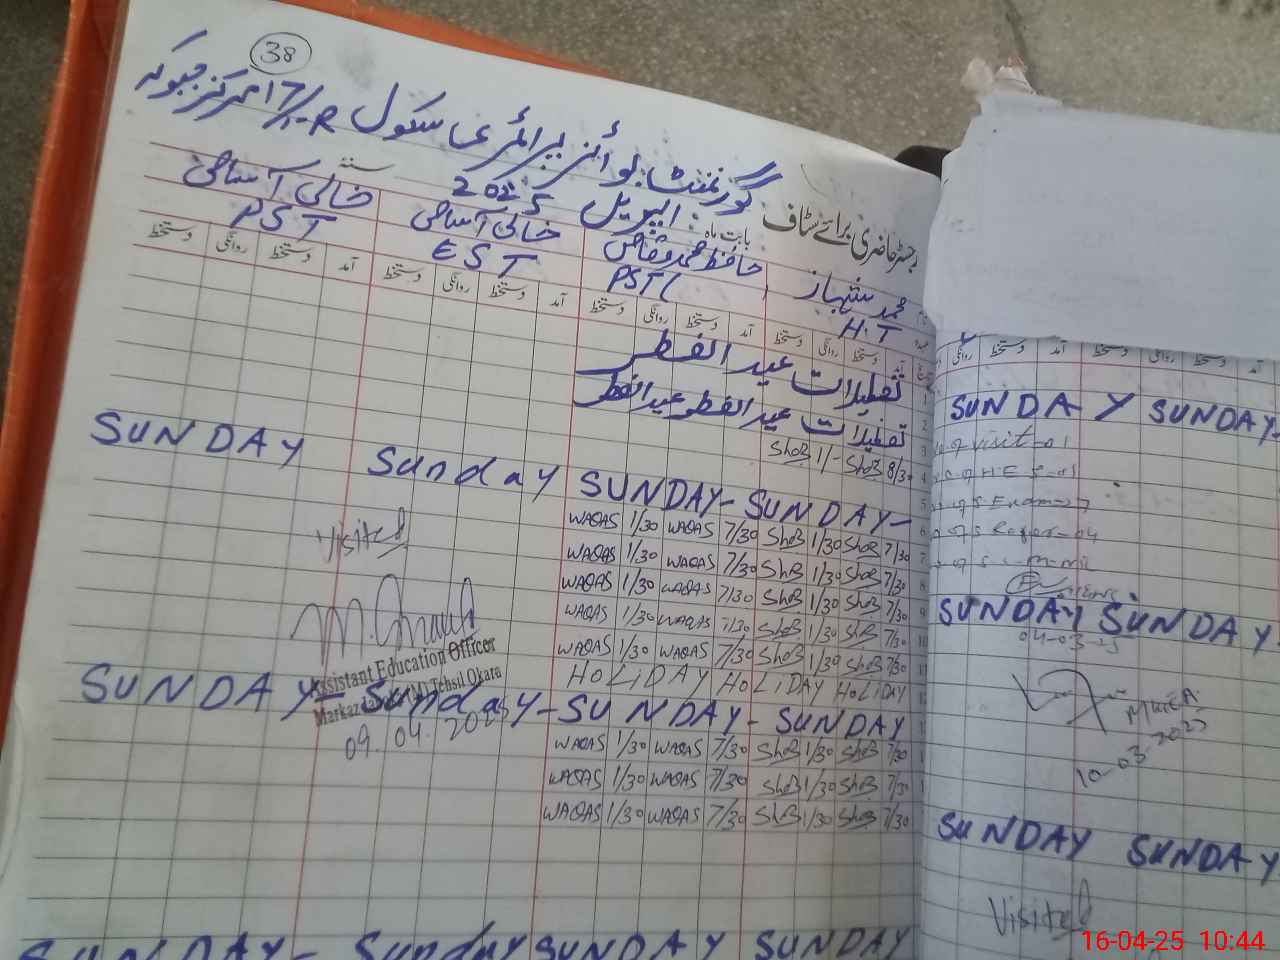 38
گورنمنٹ بوائز پرائمری سکول 17/1-R مرکز جبوکہ
رجسٹر حاضری برائے سٹاف بابت ماہ اپریل 2025 سنہ
محمد شہباز حافظ محمد وقاص خالی آسامی خالی آسامی
H.T PST EST PST
آمد دستخط روانگی دستخط آمد دستخط روانگی دستخط آمد دستخط روانگی دستخط آمد دستخط روانگی دستخط
تعطیلات عید الفطر
تعطیلات عید الفطر عید الفطر
ShaB 1/- ShaB 8/30
SUNDAY Sunday SUNDAY - SUNDAY -
WAQAS 1/30 WAQAS 7/30 ShaB 1/30 ShaB 7/30
WAQAS 1/30 WAQAS 7/30 ShaB 1/30 ShaB 7/30
WAQAS 1/30 WAQAS 7/30 ShaB 1/30 ShaB 7/30
WAQAS 1/30 WAQAS 7/30 ShaB 1/30 ShaB 7/30
WAQAS 1/30 WAQAS 7/30 ShaB 1/30 ShaB 7/30
HOLIDAY HOLIDAY HOLIDAY
Visited
Assistant Education Officer
Tehsil Okara
09.04.2025
SUNDAY - Sunday - SUNDAY - SUNDAY
WAQAS 1/30 WAQAS 7/30 ShaB 1/30 ShaB 7/30
WAQAS 1/30 WAQAS 7/30 ShaB 1/30 ShaB 7/30
WAQAS 1/30 WAQAS 7/30 ShaB 1/30 ShaB 7/30
SUNDAY - Sunday SUNDAY SUNDAY
روانگی دستخط آمد دستخط روانگی دستخط آمد
SUNDAY SUNDAY
visit-01
SUNDAY SUNDAY
04-03-25
10-03-2025
SUNDAY SUNDAY
Visited
16-04-25 10:44